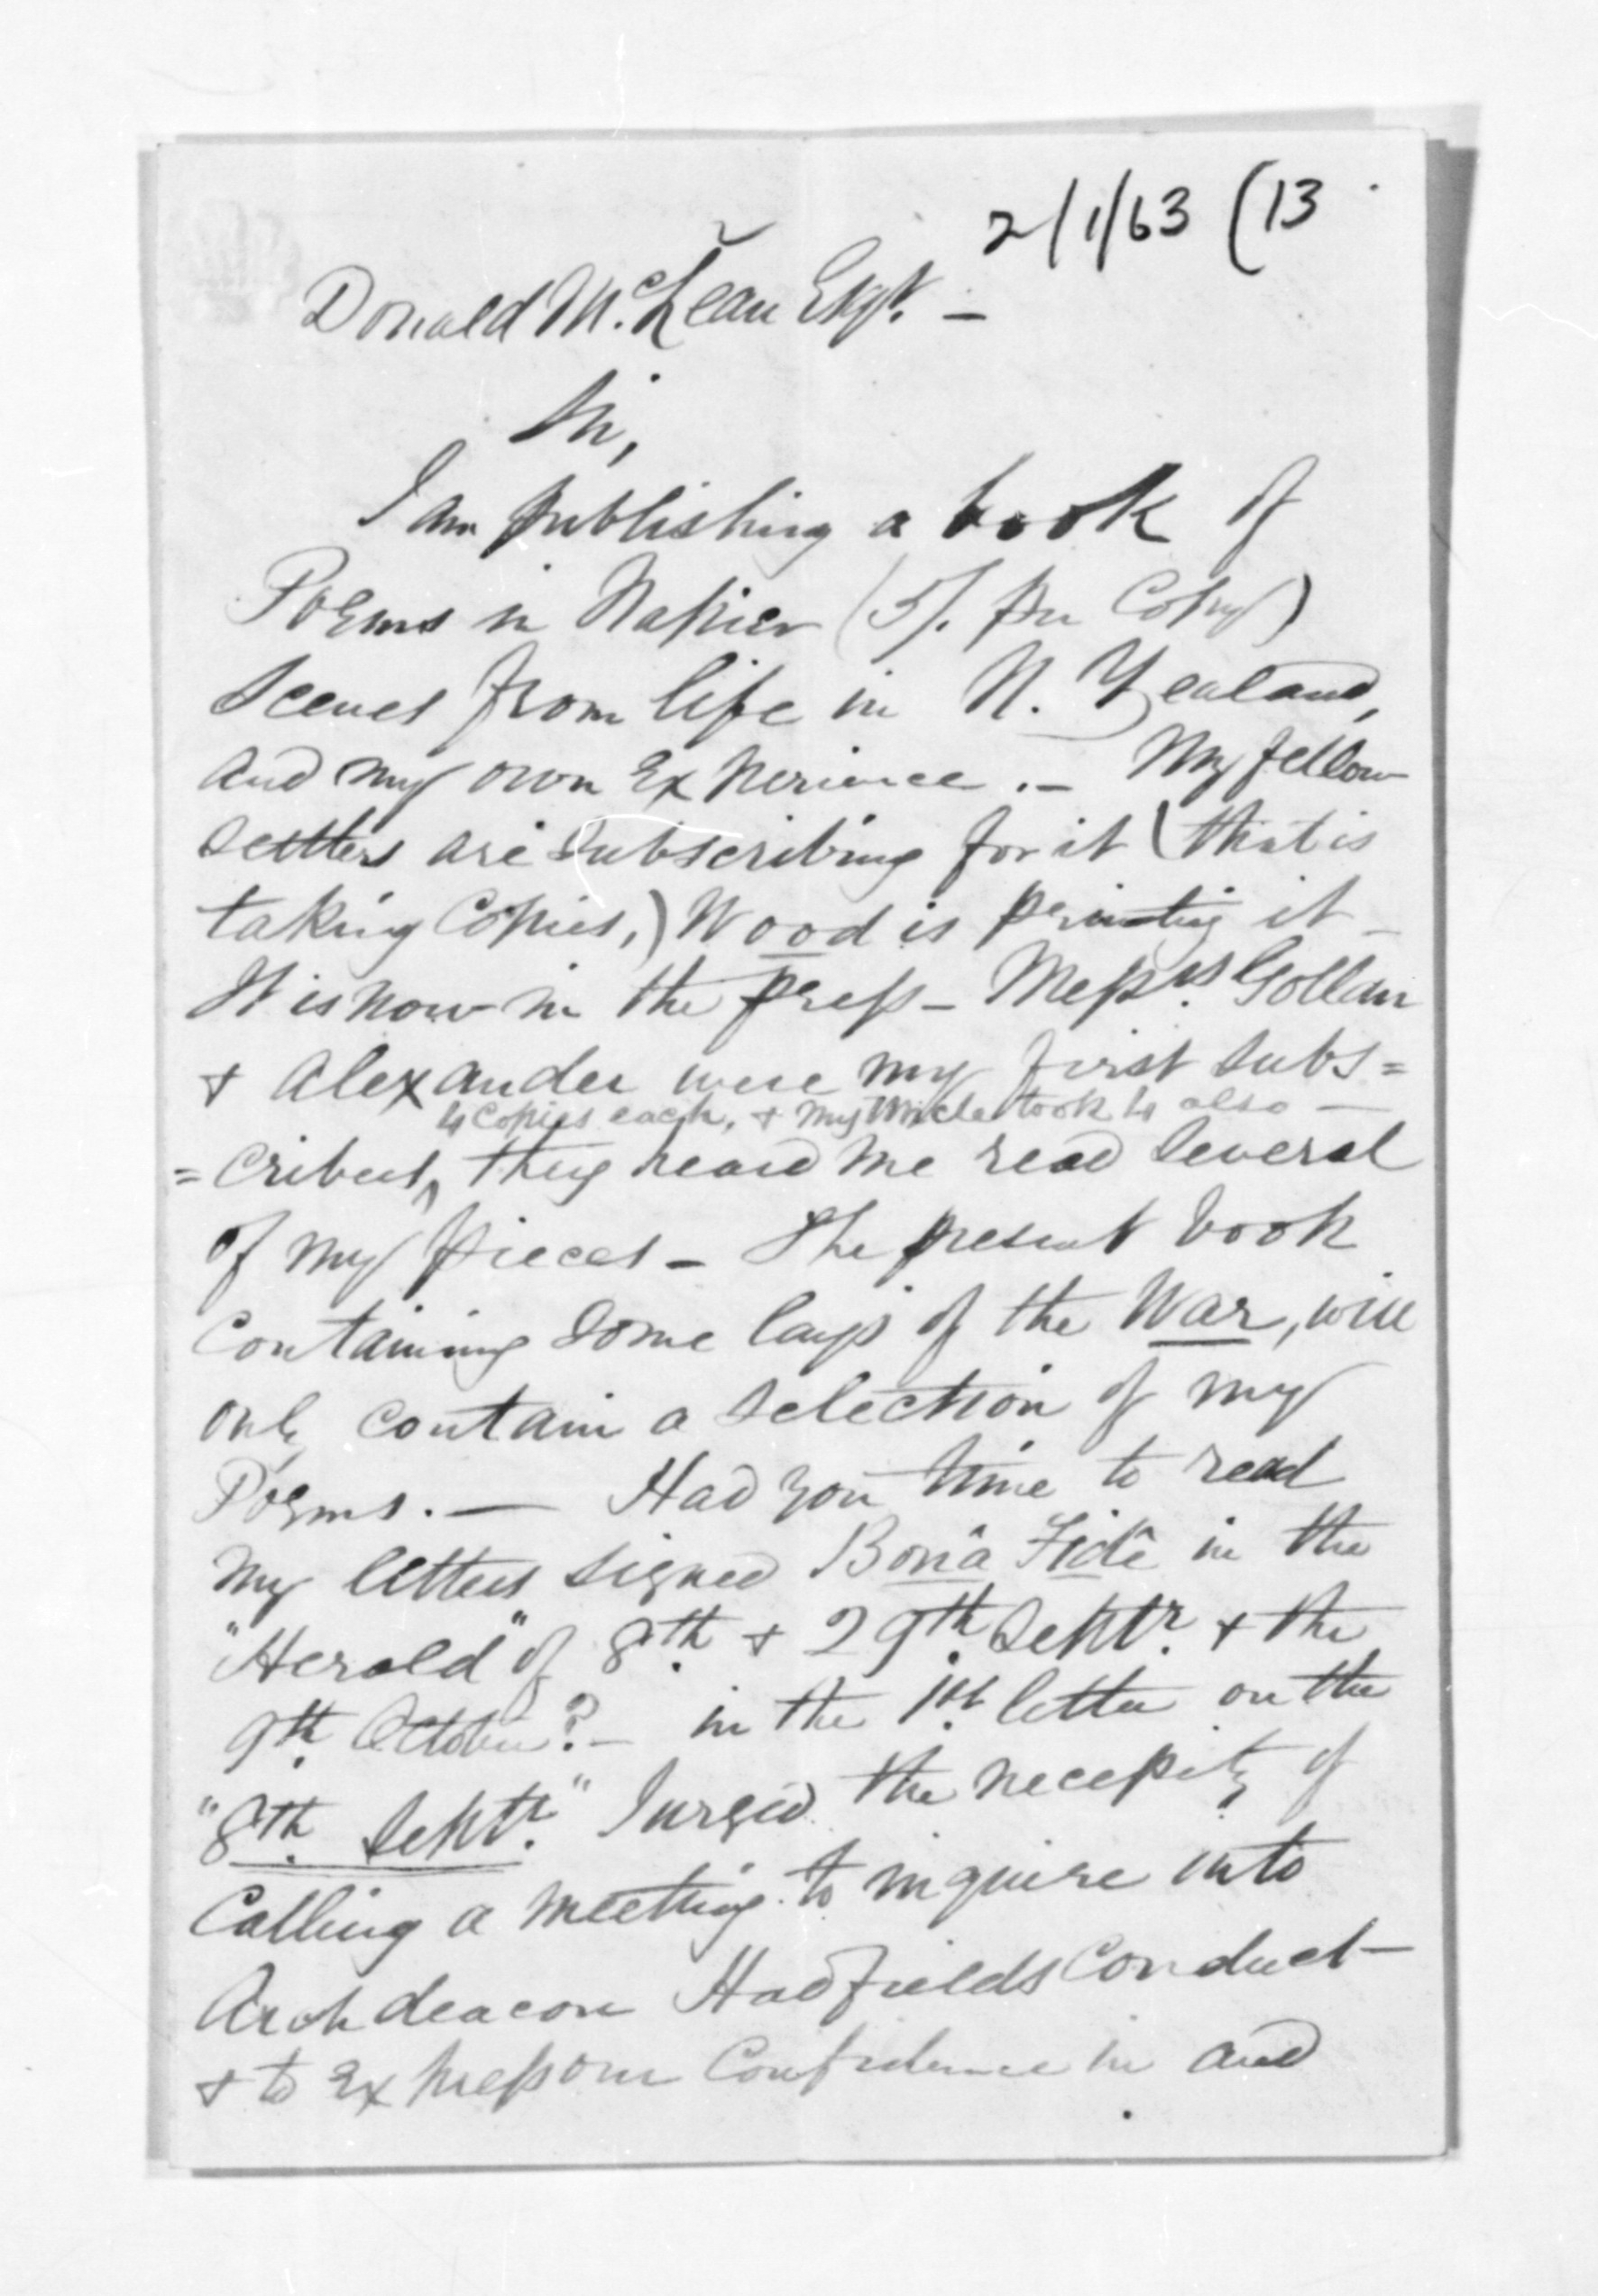 2/1/63 (13
Donald McLean Esqr. —
Sir,
I am publishing a book of
Poems in Napier (5/. per Copy)
Scenes from life in N. Zealand,
and my own Experience. — My fellow
Settlers are Subscribing for it (that is
taking Copies,) Wood is printing it —
It is now in the press — Messrs. Gollan
& Alexander were my first subs=
4 Copies each, & my Uncle took 4 also —
=cribers, they heard me read Several
of my pieces — The present book
Containing Some lays of the War, will
only contain a Selection of my
Poems. — Had you time to read
my letters signed Bonâ Fidê in the
"Herald" of 8th. & 29th. Septr. & the
9th. October? — in the 1st. letter on the
"8th. Septr." I urged the necessity of
Calling a meeting to inquire into
Archdeacon Hadfields Conduct —
& to Express our Confidence in and